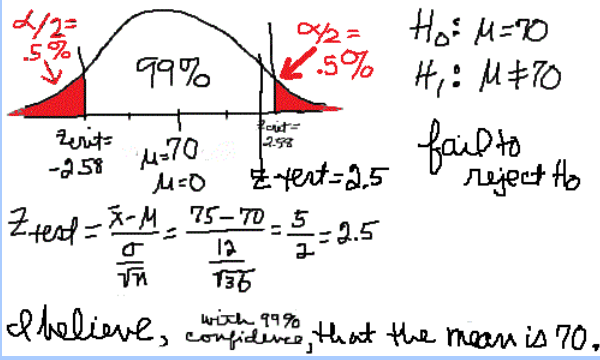 α/2=
.5%
99%
α/2=
.5%
H₀: μ=70
H₁: μ≠70
Zcrit=
-2.58
μ=70
μ=0
Zcrit=
2.58
Z-test=2.5
fail to
reject H₀
Ztest = x̄-μ / σ/√n = 75-70 / 12/√36 = 5/2 = 2.5
I believe, with 99% confidence, that the mean is 70.